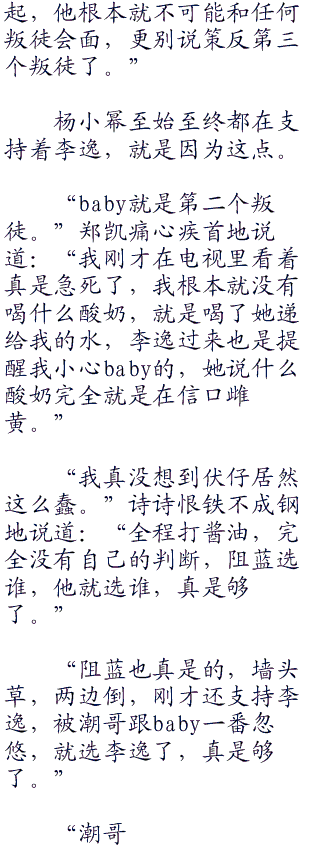 起，他根本就不可能和任何
叛徒会面，更别说策反第三
个叛徒了。”
杨小幂至始至终都在支
持着李逸，就是因为这点。
“baby就是第二个叛
徒。”郑凯痛心疾首地说
道：“我刚才在电视里看着
真是急死了，我根本就没有
喝什么酸奶，就是喝了她递
给我的水，李逸过来也是提
醒我小心baby的，她说什么
酸奶完全就是在信口雌
黄。”
“我真没想到伏仔居然
这么蠢。”诗诗恨铁不成钢
地说道：“全程打酱油，完
全没有自己的判断，阻蓝选
谁，他就选谁，真是够
了。”
“阻蓝也真是的，墙头
草，两边倒，刚才还支持李
逸，被潮哥跟baby一番忽
悠，就选李逸了，真是够
了。”
“潮哥